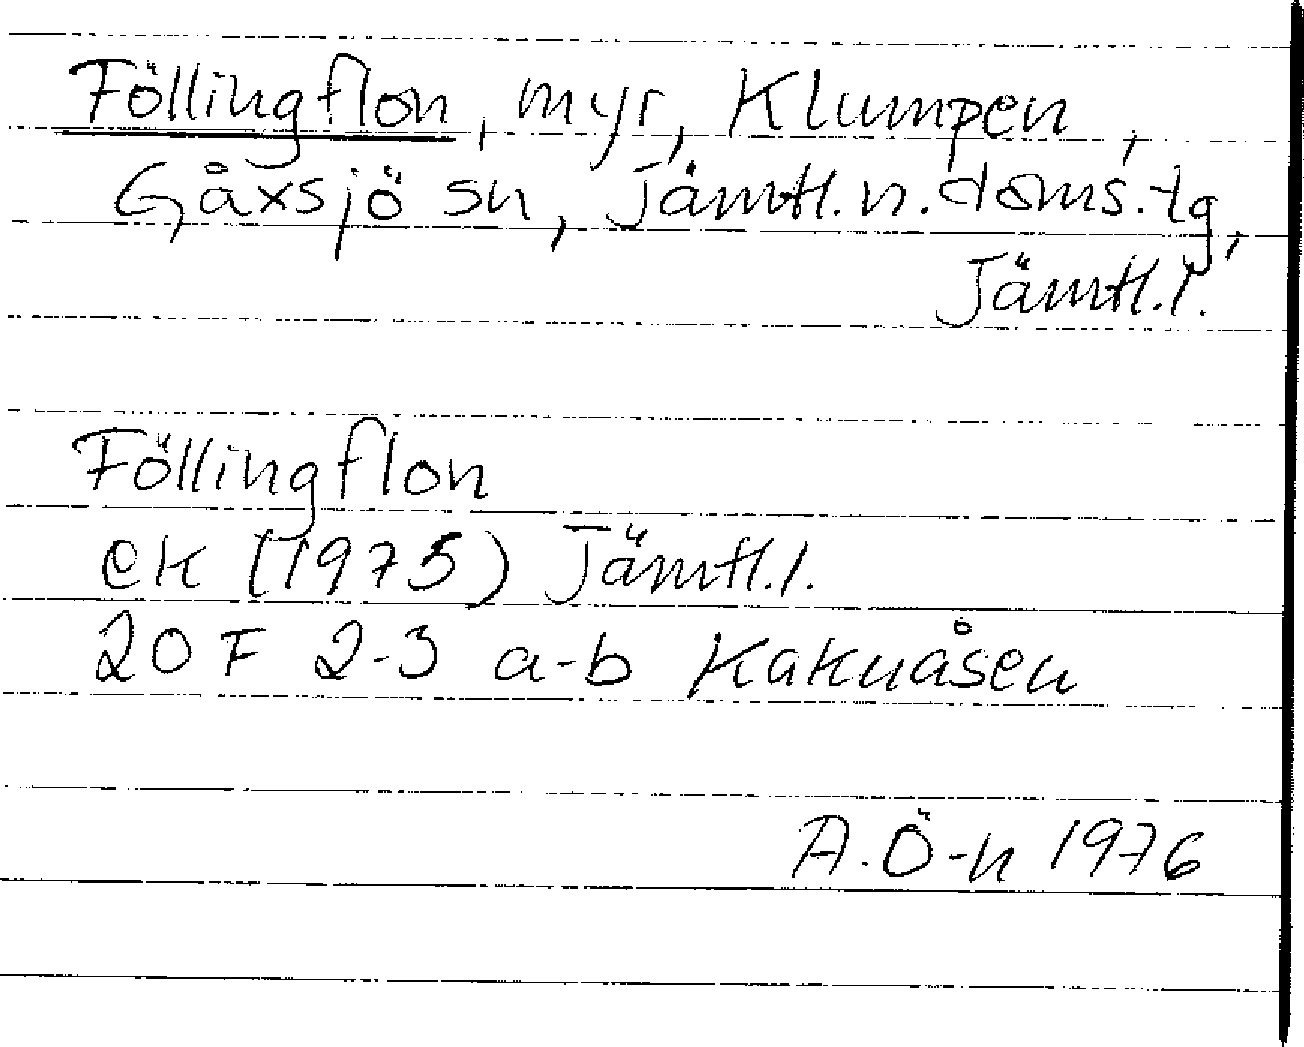 Föllingflon, myr, Klumpen,
Gåxsjö sn, Jämtl. n. doms. tg,
Jämtl. l.
Föllingflon
ek (1975) Jämtl. l.
20 F 2-3 a-b Kakuåsen
A. Ö-n 1976